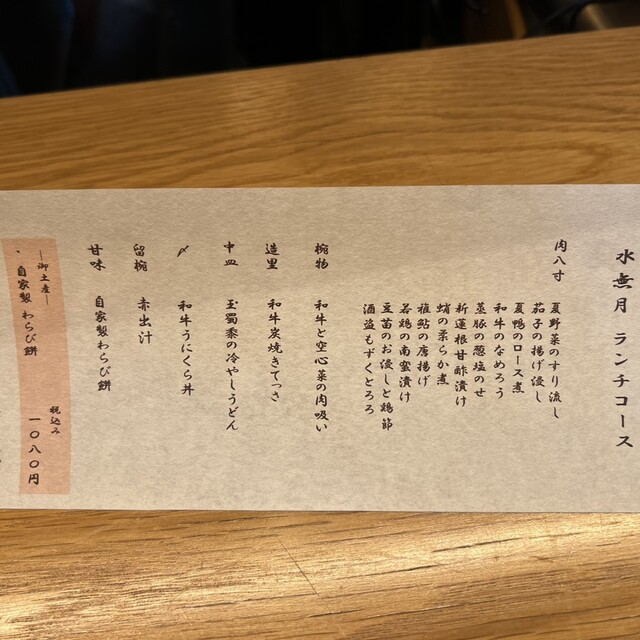 水無月 ランチコース
肉八寸
夏野菜のすり流し
茄子の揚げ浸し
夏鴨のロース煮
和牛のなめろう
蒸豚の葱塩のせ
新蓮根甘酢漬け
蛸の柔らか煮
稚鮎の唐揚げ
若鶏の南蛮漬け
豆苗のお浸しと鶏節
酒盗もずくとろろ
椀物 和牛と空心菜の肉吸い
造里 和牛炭焼きてっさ
中皿 玉蜀黍の冷やしうどん
〆 和牛うにくら丼
留椀 赤出汁
甘味 自家製わらび餅
―御土産―
・自家製わらび餅
税込み
一〇八〇円